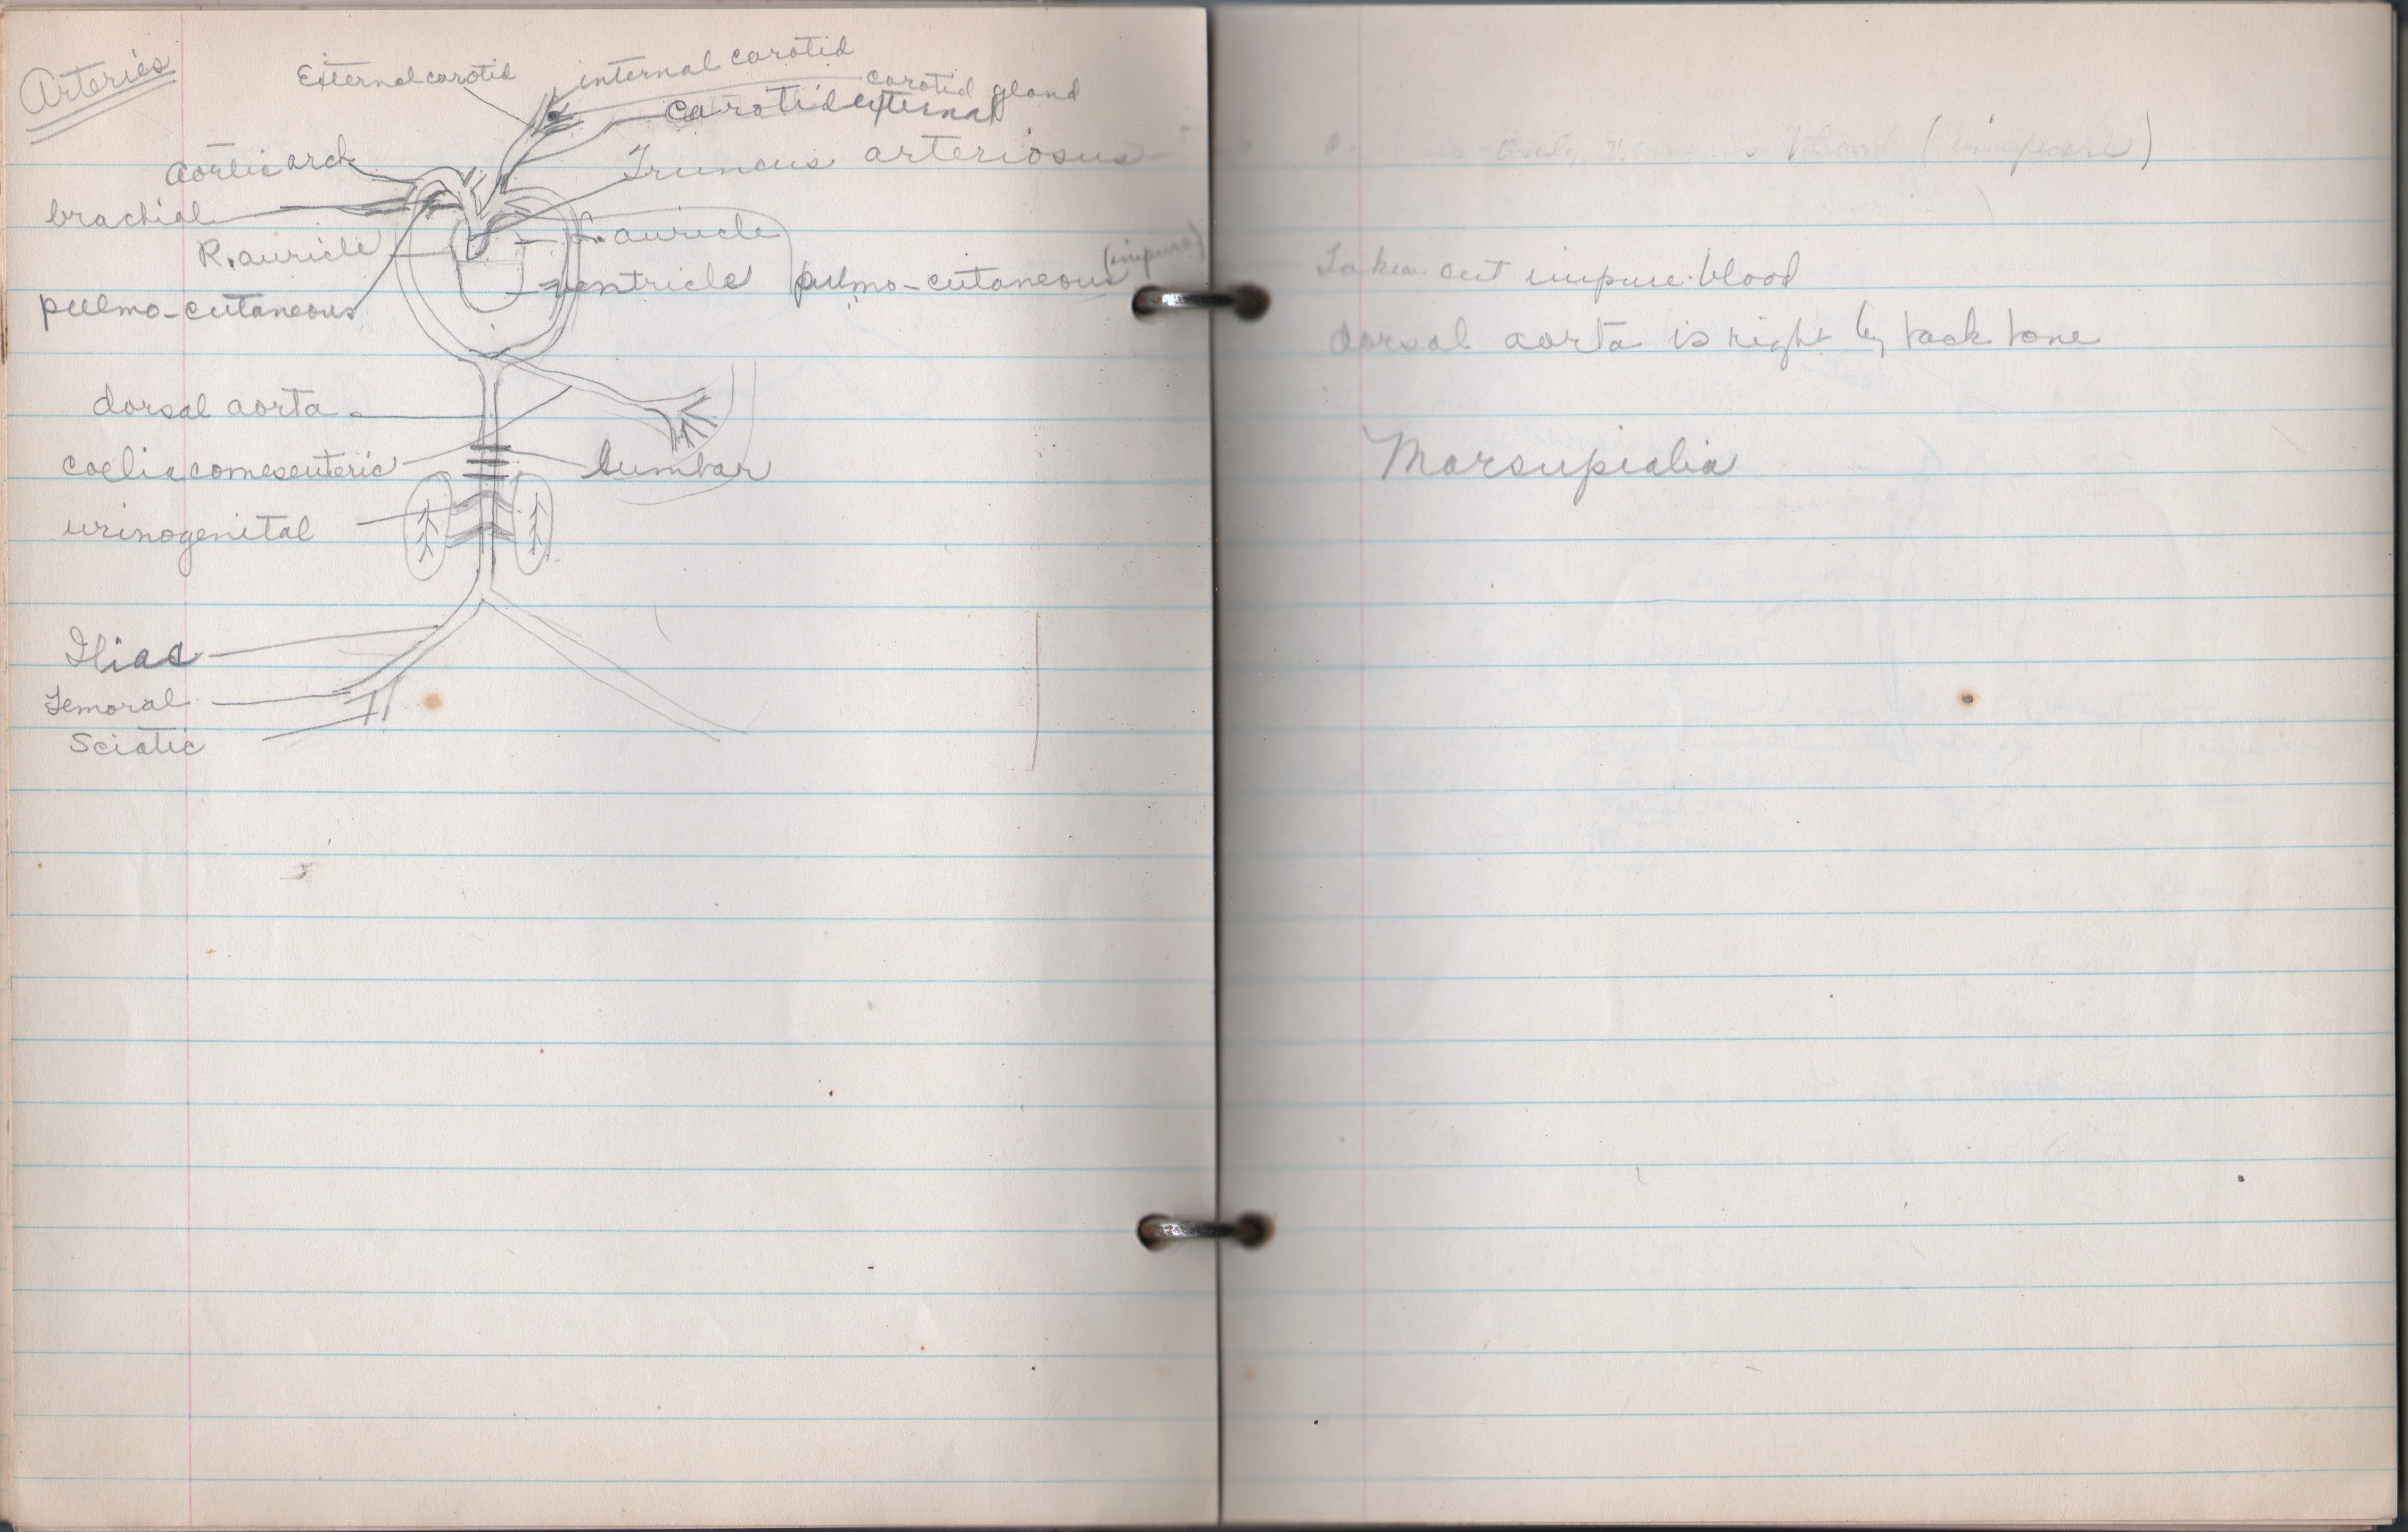 Arteries
External carotid
internal carotid
carotid gland
Carotid external
Truncus arteriosus
aortic arch
brachial
R. auricle
L. auricle
ventricle
pulmo-cutaneous (impure)
pulmo-cutaneous
dorsal aorta
coeliacomesenteric
lumbar
urinogenital
Iliac
Femoral
Sciatic
only blood (impure)
Takes out impure blood
dorsal aorta is right by back bone
Marsupialia